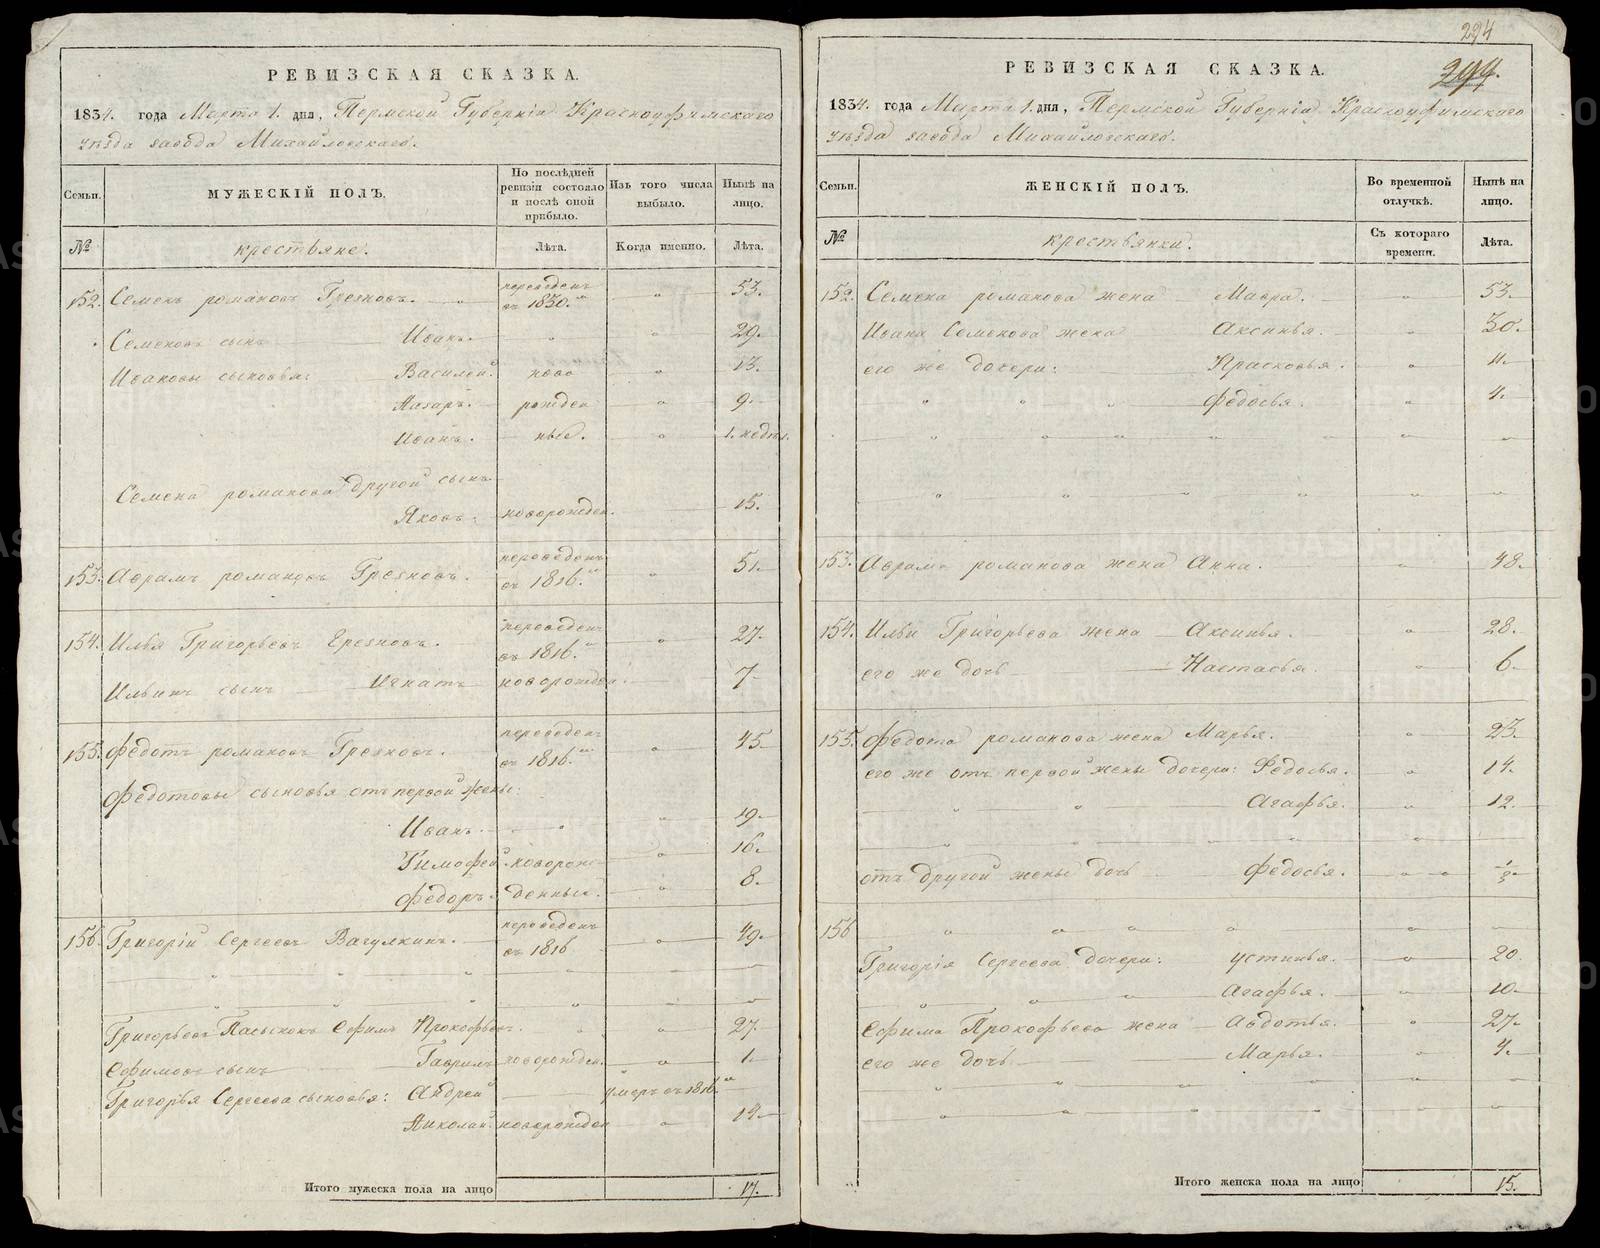 294
294.
РЕВИЗСКАЯ СКАЗКА.
1834. года Марта 1. дня, Пермской Губерніи Красноуфимскаго
уѣзда завода Михайловскаго.
Семьи.
МУЖЕСКІЙ ПОЛЪ.
По послѣдней ревизіи состояло и послѣ оной прибыло.
Изъ того числа выбыло.
Нынѣ на лицо.
№
крестьяне.
Лѣта.
Когда именно.
Лѣта.
152. Семенъ романовъ Грезновъ. переведенъ въ 1830.м 53.
Семеновъ сынъ Иванъ. 29.
Ивановы сыновья: Василей. ново 13.
Назаръ. рожден 9.
Иванъ. ные. 1. недѣл.
Семена романова другой сынъ
Яковъ. новорожден. 15.
153. Аврамъ романовъ Грезновъ. переведенъ въ 1816.м 51.
154. Илья Григорьевъ Грезновъ. переведенъ въ 1816.м 27.
Ильинъ сынъ Игнатъ новорожден. 7
155. Федотъ романовъ Грезновъ. переведенъ въ 1816.м 45.
Федотовы сыновья отъ первой жены:
Иванъ. 19.
Тимофей. новорож 16.
Федоръ. денные. 8.
156. Григорій Сергеевъ Вагулкинъ. переведенъ въ 1816 49.
Григорьевъ Пасынокъ Ефимъ Прокофьевъ. 27.
Ефимовъ сынъ Гаврилъ новорожден. 1.
Григорья Сергеева сыновья: Андрей умеръ въ 1816.м
Николай. новорожден 14.
Итого мужеска пола на лицо 17.
РЕВИЗСКАЯ СКАЗКА.
1834. года Марта 1. дня, Пермской Губерніи Красноуфимскаго
уѣзда завода Михайловскаго.
Семьи.
ЖЕНСКІЙ ПОЛЪ.
Во временной отлучкѣ.
Нынѣ на лицо.
№
крестьянки.
Съ котораго времени.
Лѣта.
152. Семена романова жена Мавра. 53.
Ивана Семенова жена Аксинья. 30.
его же дочери: Прасковья. 11.
Федосья. 4.
153. Аврама романова жена Анна. 48.
154. Ильи Григорьева жена Аксинья. 28.
его же дочь Настасья. 6.
155. Федота романова жена Марья. 23.
его же отъ первой жены дочери: Федосья. 14.
Агафья. 12.
отъ другой жены дочь Федосья.
156
Григорія Сергеева дочери: Устинья. 20.
Агафья. 10.
Ефима Прокофьева жена Авдотья. 27.
его же дочь Марья. 4.
Итого женска пола на лицо 15.
METRIKI.GASO-URAL.RU